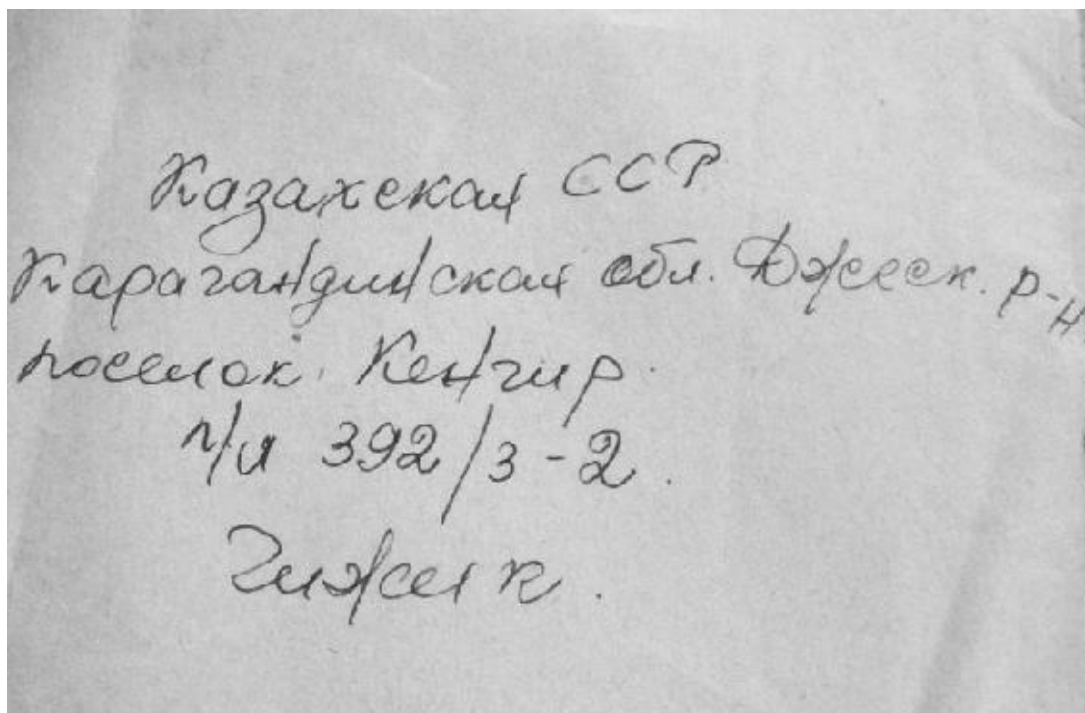 Казахская ССР
Карагандинская обл. Джезк. р-н
поселок Кенгир.
п/я 392/3-2.
Чижик.